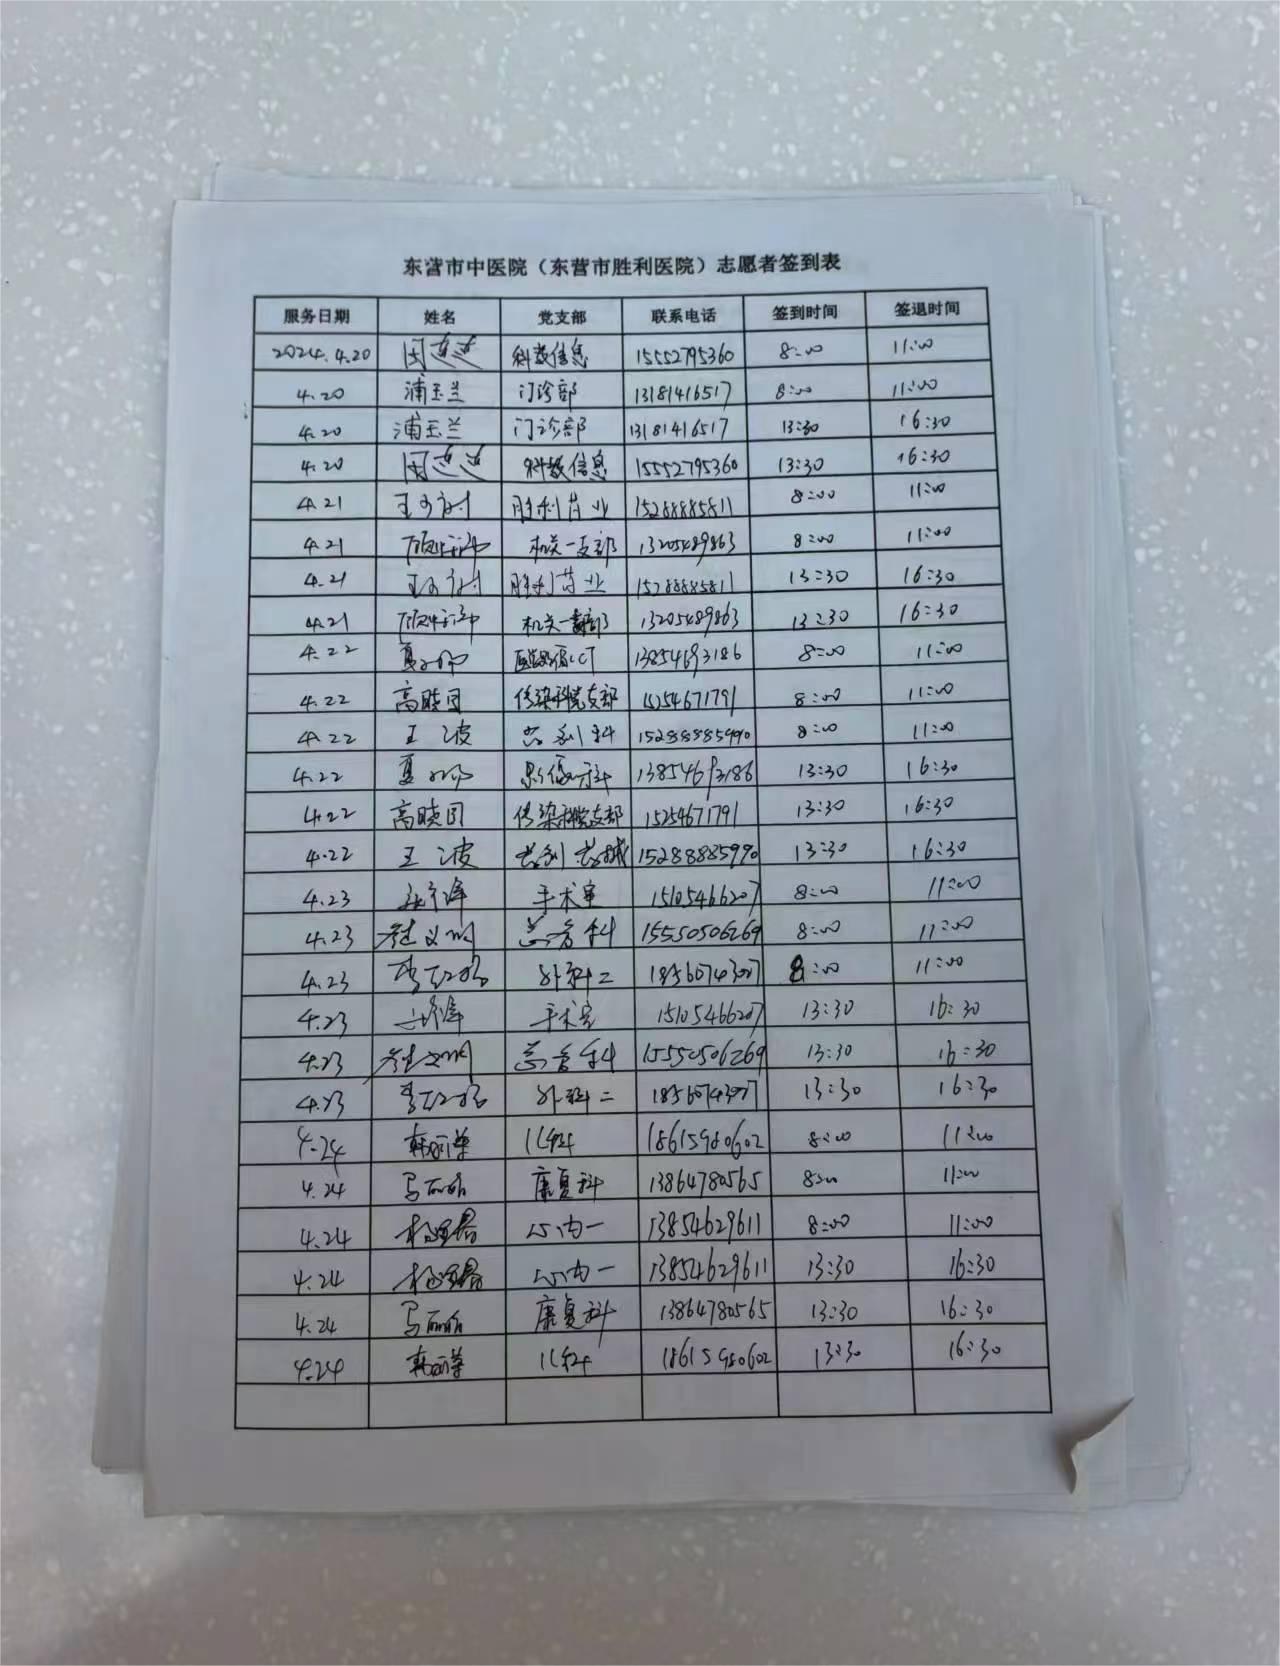 东营市中医院（东营市胜利医院）志愿者签到表
服务日期 姓名 党支部 联系电话 签到时间 签退时间
2024.4.20 闫 科教信息 15552795360 8:00 11:00
4.20 浦玉兰 门诊部 13181416517 8:00 11:00
4.20 浦玉兰 门诊部 13181416517 13:30 16:30
4.20 闫 科教信息 15552795360 13:30 16:30
4.21 王 胜利药业 15288885811 8:00 11:00
4.21 机关一支部 13205489863 8:00 11:00
4.21 王 胜利药业 15288885811 13:30 16:30
4.21 机关一支部 13205489863 13:30 16:30
4.22 夏 13854693186 8:00 11:00
4.22 高晓 传染科党支部 15254671791 8:00 11:00
4.22 王波 15288885990 8:00 11:00
4.22 夏 13854693186 13:30 16:30
4.22 高晓 传染科党支部 15254671791 13:30 16:30
4.22 王波 15288885990 13:30 16:30
4.23 手术室 15105466207 8:00 11:00
4.23 15550506269 8:00 11:00
4.23 外科二 18560743007 8:00 11:00
4.23 手术室 15105466207 13:30 16:30
4.23 15550506269 13:30 16:30
4.23 外科二 18560743007 13:30 16:30
4.24 韩 儿科 18615980602 8:00 11:00
4.24 马 康复科 13864780565 8:00 11:00
4.24 心内一 13854629611 8:00 11:00
4.24 心内一 13854629611 13:30 16:30
4.24 马 康复科 13864780565 13:30 16:30
4.24 韩 儿科 18615980602 13:30 16:30